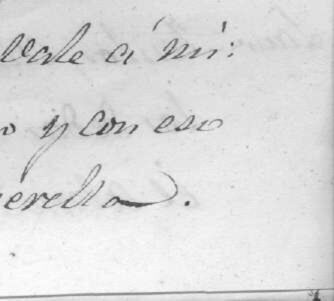 vale á mi:
o y con eso
erella.